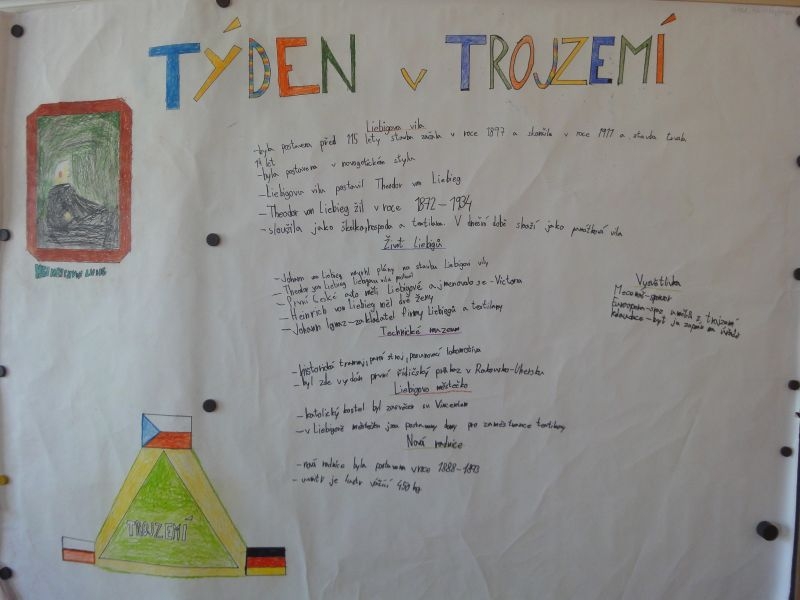 TÝDEN v TROJZEMÍ
Liebigova vila
-byla postavena před 115 lety stavba začala v roce 1897 a skončila v roce 1911 a stavba trvala
14 let
-byla postavena v novogotickém stylu
-Liebigovu vilu postavil Theodor von Liebieg
-Theodor von Liebieg žil v roce 1872-1934
-sloužila jako školka, hospoda a textilana. V dnešní době slouží jako památková vila
Život Liebigů
-Johann von Liebieg navrhl plány na stavbu Liebigovi vily
-Theodor von Liebieg Liebigova vila postavil
-První České auto měli Liebigové a jmenovalo se-Victoria
-Heinrich von Liebieg měl dvě ženy
-Johann Ignaz-zakladatel firmy Liebigů a textilany
Technické muzeum
-historická tramvaj, první stroj, posunovací lokomotiva
-byl zde vydán první řidičský průkaz v Rakousko-Uhersku
Liebigovo městečko
-katolický kostel byl zasvěcen sv. Vincenciovi
-v Liebigově městečku jsou postaveny domy pro zaměstnance textilany
Nová radnice
-nová radnice byla postavena v roce 1888-1893
-uvnitř je lustr vážící 450 kg
Vysvětlivka
Mecenáš-sponzor
z trojzemí
TROJZEMÍ